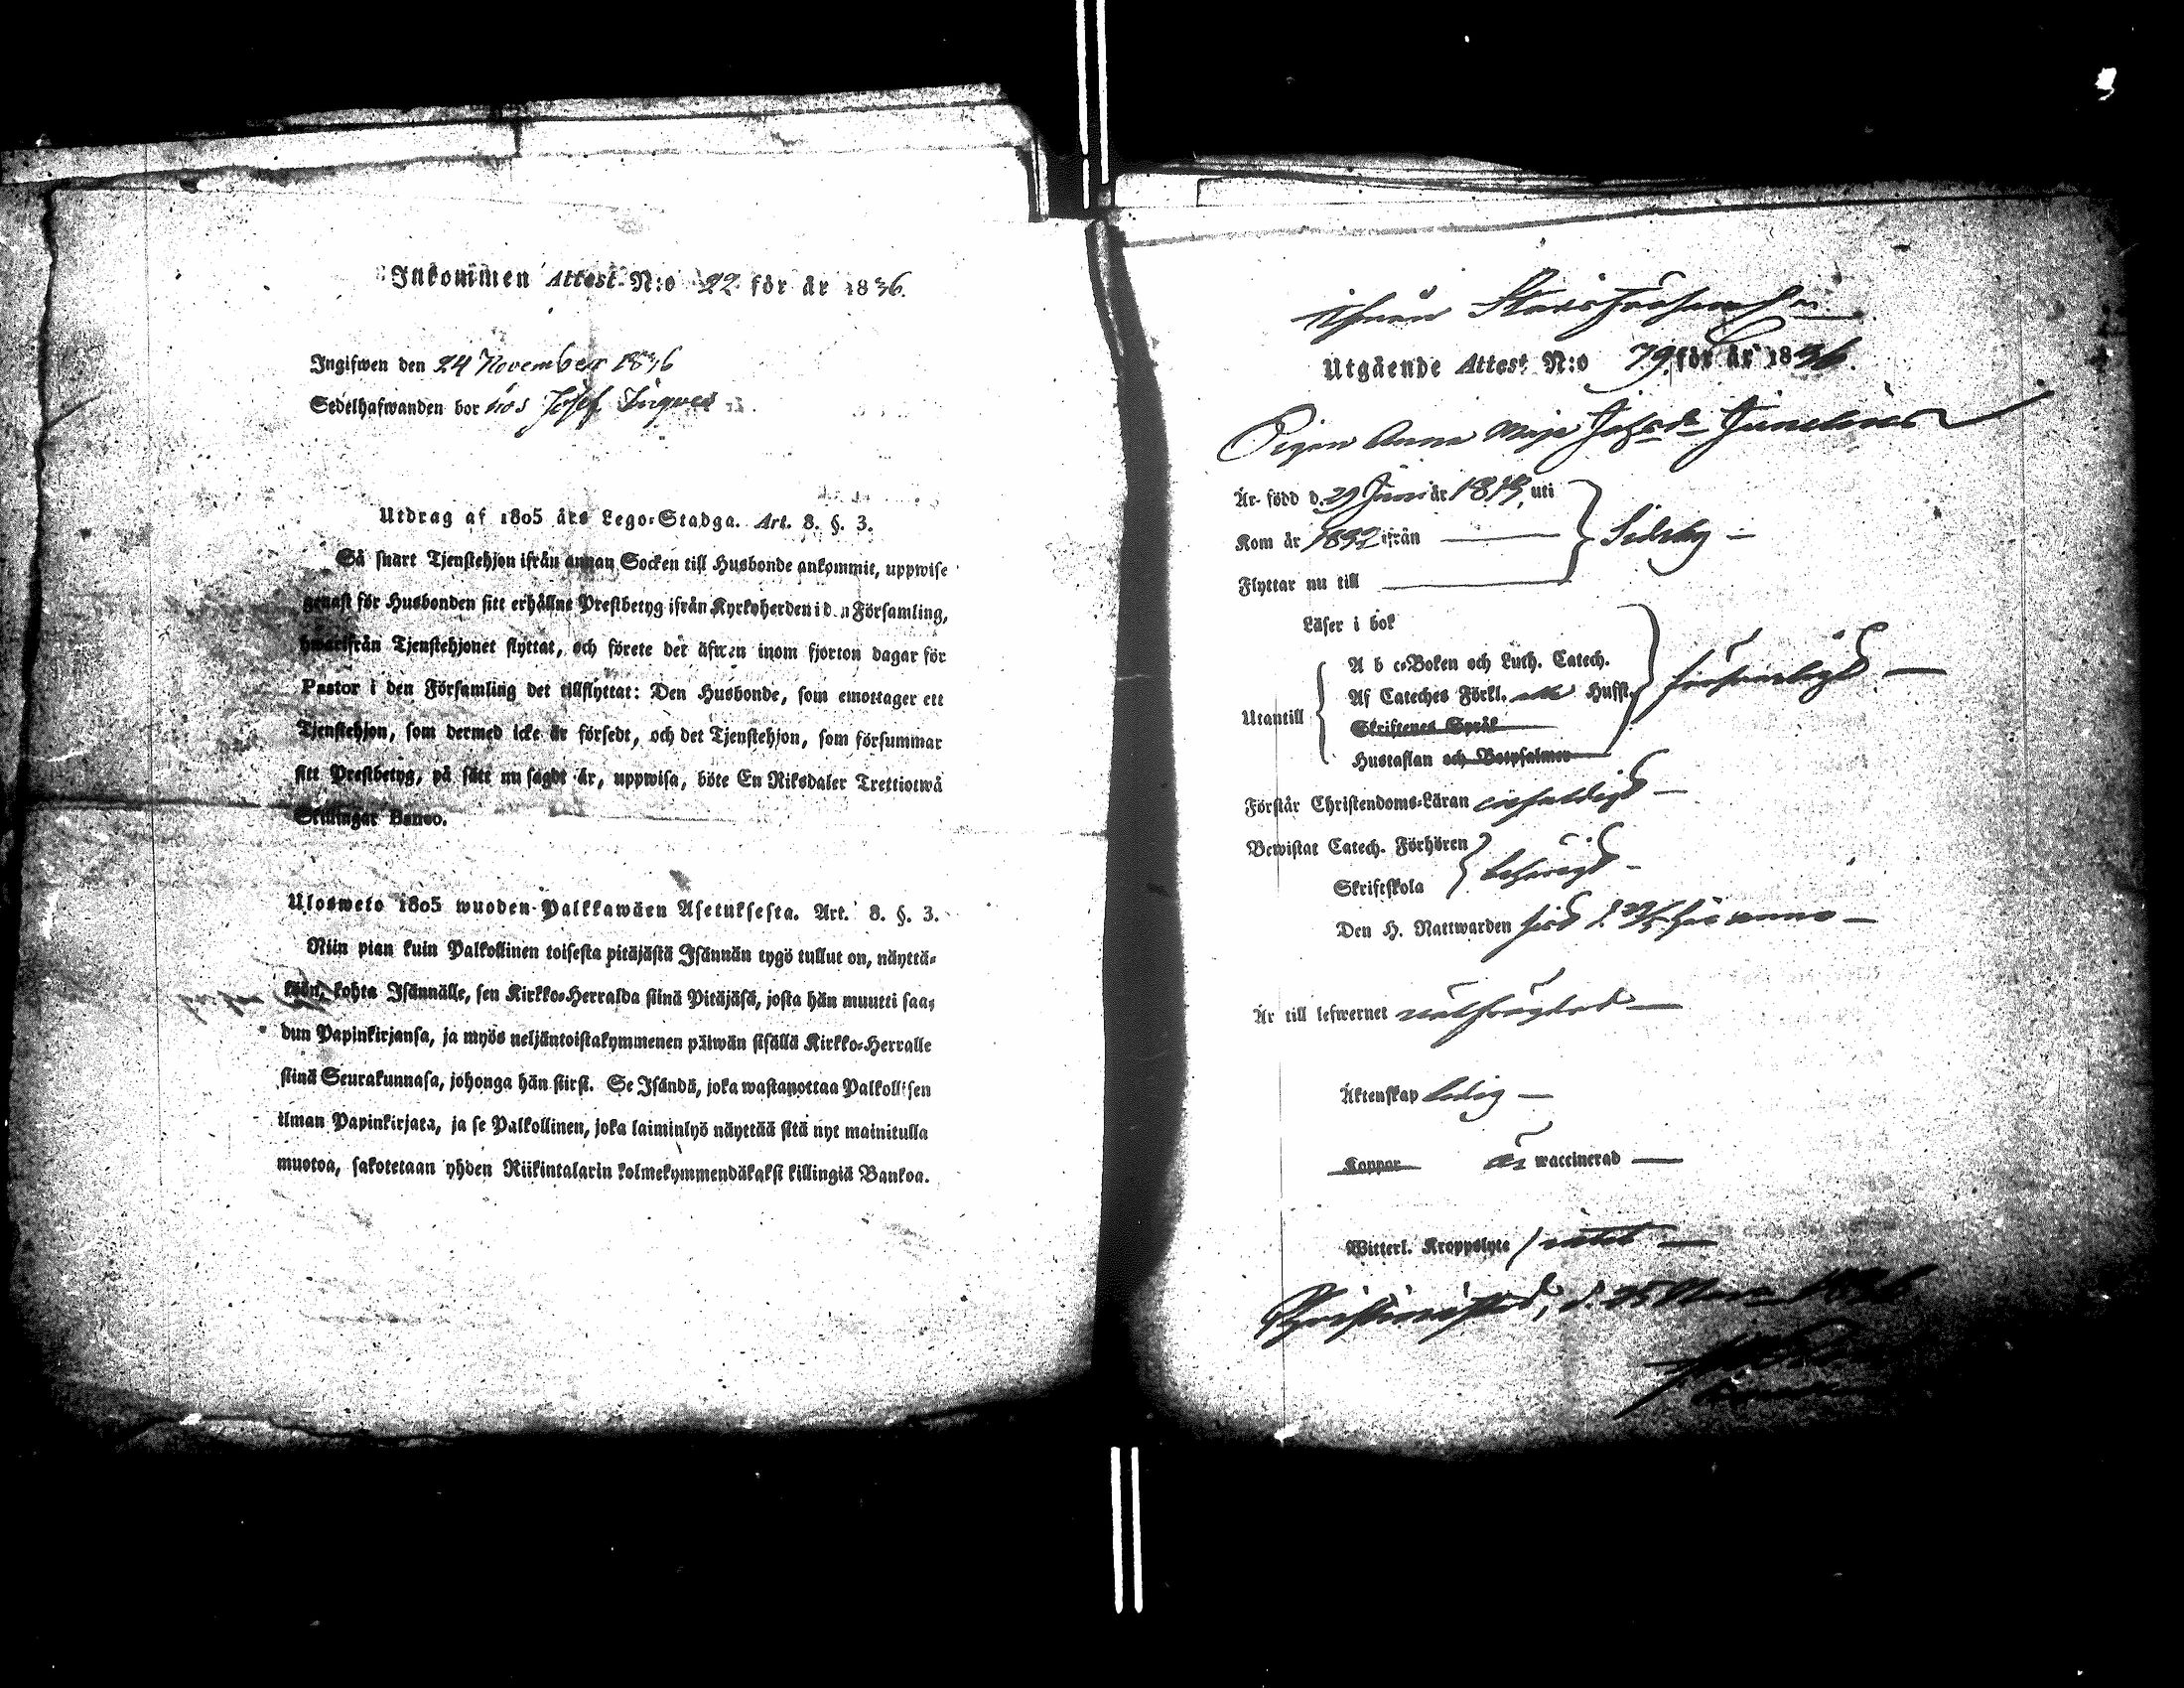 Inkommen Attest N:o 22 för år 1836.
Ingifwen den 24 November 1836
Sedelhafwanden bor hos Josef Ingves
Utdrag af 1805 års Lego-Stadga. Art. 8. §. 3.
Så snart Tjenstehjon ifrån annan Socken till Husbonde ankommit, uppwise
genast för Husbonden sitt erhållne Prestbetyg ifrån Kyrkoherden i d n Församling,
hwarifrån Tjenstehjonet flyttat, och förete det äfwen inom fjorton dagar för
Pastor i den Församling det tillflyttat: Den Husbonde, som emottager ett
Tjenstehjon, som dermed icke är försedt, och det Tjenstehjon, som försummar
sitt Prestbetyg, på sätt nu sagdt är, uppwisa, böte En Riksdaler Trettiotwå
Skillingar Banco.
Ulosweto 1805 wuoden Palkkawäen Asetuksesta. Art. 8. §. 3.
Niin pian kuin Palkollinen toisesta pitäjästä Isännän tygö tullut on, näyttä-
köön, kohta Isännälle, sen Kirkko-Herralda siinä Pitäjäsä, josta hän muutti saa-
dun Papinkirjansa, ja myös neljäntoistakymmenen päiwän sisällä Kirkko-Herralle
siinä Seurakunnasa, johonga hän siirsi. Se Isändä, joka wastanottaa Palkollisen
ilman Papinkirjata, ja se Palkollinen, joka laiminlyö näyttää sitä nyt mainitulla
muotoa, sakotetaan yhden Riikintalarin kolmekymmendäkaksi killingiä Bankoa.
Utgående Attest N:o 79 för år 1836.
Pigan Anna Maja
Är född d. 29 Juni år uti
Kom år 1832 ifrån
Sideby
Flyttar nu till
Läser i bok
A b c-Boken och Luth. Catech.
Af Cateches Förkl. Husst.
försvarligt
Utantill
Skriftenes Språk
Hustaflan och Botpsalmer
Förstår Christendoms-Läran enfaldigt
Bewistat Catech. Förhören
behörigt
Skriftskola
Den H. Nattwarden
Är till lefwernet välfrägdad
Äktenskap ledig
Koppor är waccinerad
Witterl. Kroppslyte intet
Christinestad, d. 1836